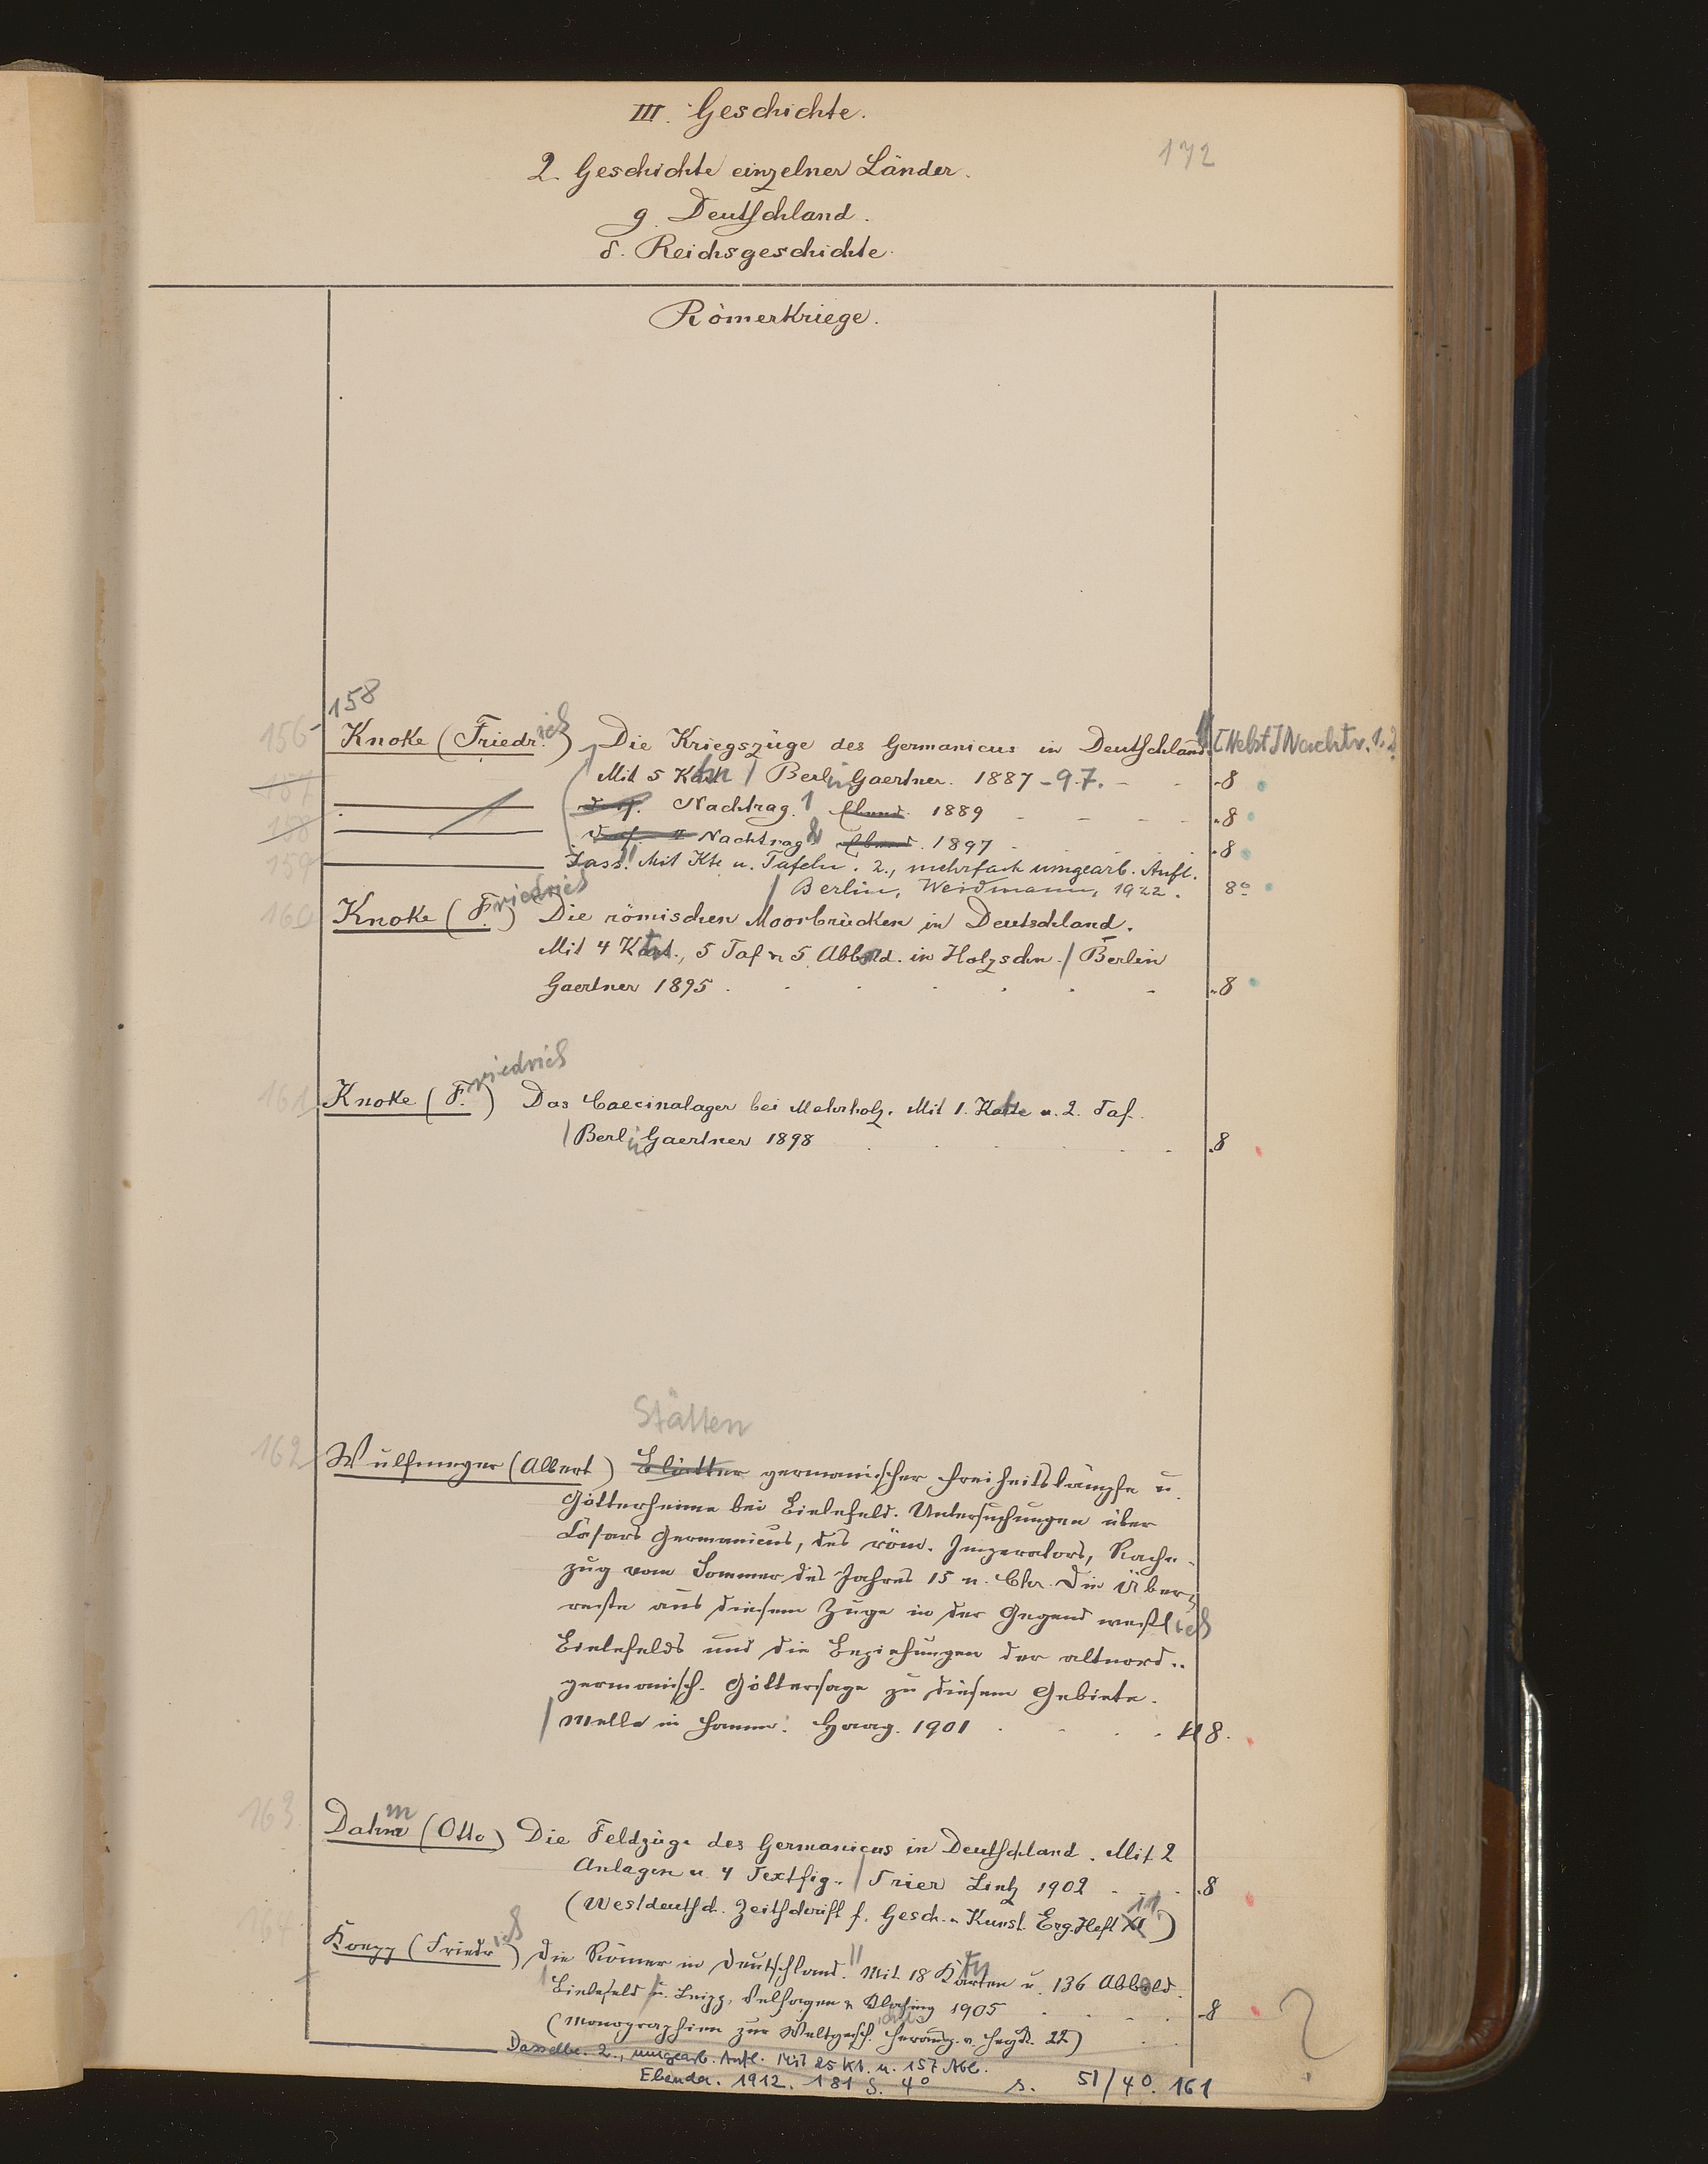 III. Geschichte.
172
2. Geschichte einzelner Länder.
g. Deutschland.
δ. Reichsgeschichte.
Römerkriege.
158
156- Knoke (Friedrich) Die Kriegszüge des Germanicus in Deutschland. [Nebst] Nachtr. 1.2
157 Mit 5 Karten / Berlin Gaertner. 1887-97. - - 8
158 Dass. Nachtrag 1 Ebend. 1889 - - - - 8
Dass. II Nachtrag 2 Ebend. 1897 - - 8
159 Dass. Mit Kte u. Tafeln. 2., mehrfach umgearb. Aufl.
/ Berlin, Weidmann, 1922. 8°
160 Knoke (Friedrich) Die römischen Moorbrücken in Deutschland.
Mit 4 Kart., 5 Taf u 5 Abbild. in Holzschn. / Berlin
Gaertner 1895 . - - - - - - 8
161 Knoke (Friedrich) Das Caecinalager bei Mehrholz. Mit 1. Karte u. 2. Taf.
/ Berlin Gaertner 1898 . . . . - 8
Stätten
162 Wulfmeyer (Albert) Blätter germanischer Freiheitskämpfe u.
Götterheime bei Bielefeld. Untersuchungen über
Cäsars Germanicus, des röm. Imperators, Rache-
zug vom Sommer des Jahres 15 n. Chr. Die Über-
reste aus diesem Zuge in der Gegend westlich
Bielefelds und die Beziehungen der altnord.-
germanisch. Göttersage zu diesem Gebiete.
/ Melle in Hannov. Haag. 1901 . . . . 8.
163 Dahm (Otto) Die Feldzüge des Germanicus in Deutschland. Mit 2
Anlagen u 4 Textfig. / Trier Lintz 1902 . . . 8
(Westdeutsch. Zeitschrift f. Gesch. u Kunst. Erg.Heft XI 11.)
164 Koepp (Friedrich) Die Römer in Deutschland. Mit 18 Karten u. 136 Abbild.
Bielefeld u. Leipz. Velhagen u Klasing 1905 . . . . 8
(Monographien zur Weltgesch. herausg. v. Heyck. 22)
?
Dasselbe. 2., umgearb. Aufl. Mit 25 Kt. u. 157 Abb.
Ebenda. 1912. 181 S. 4° s. 51/40. 161